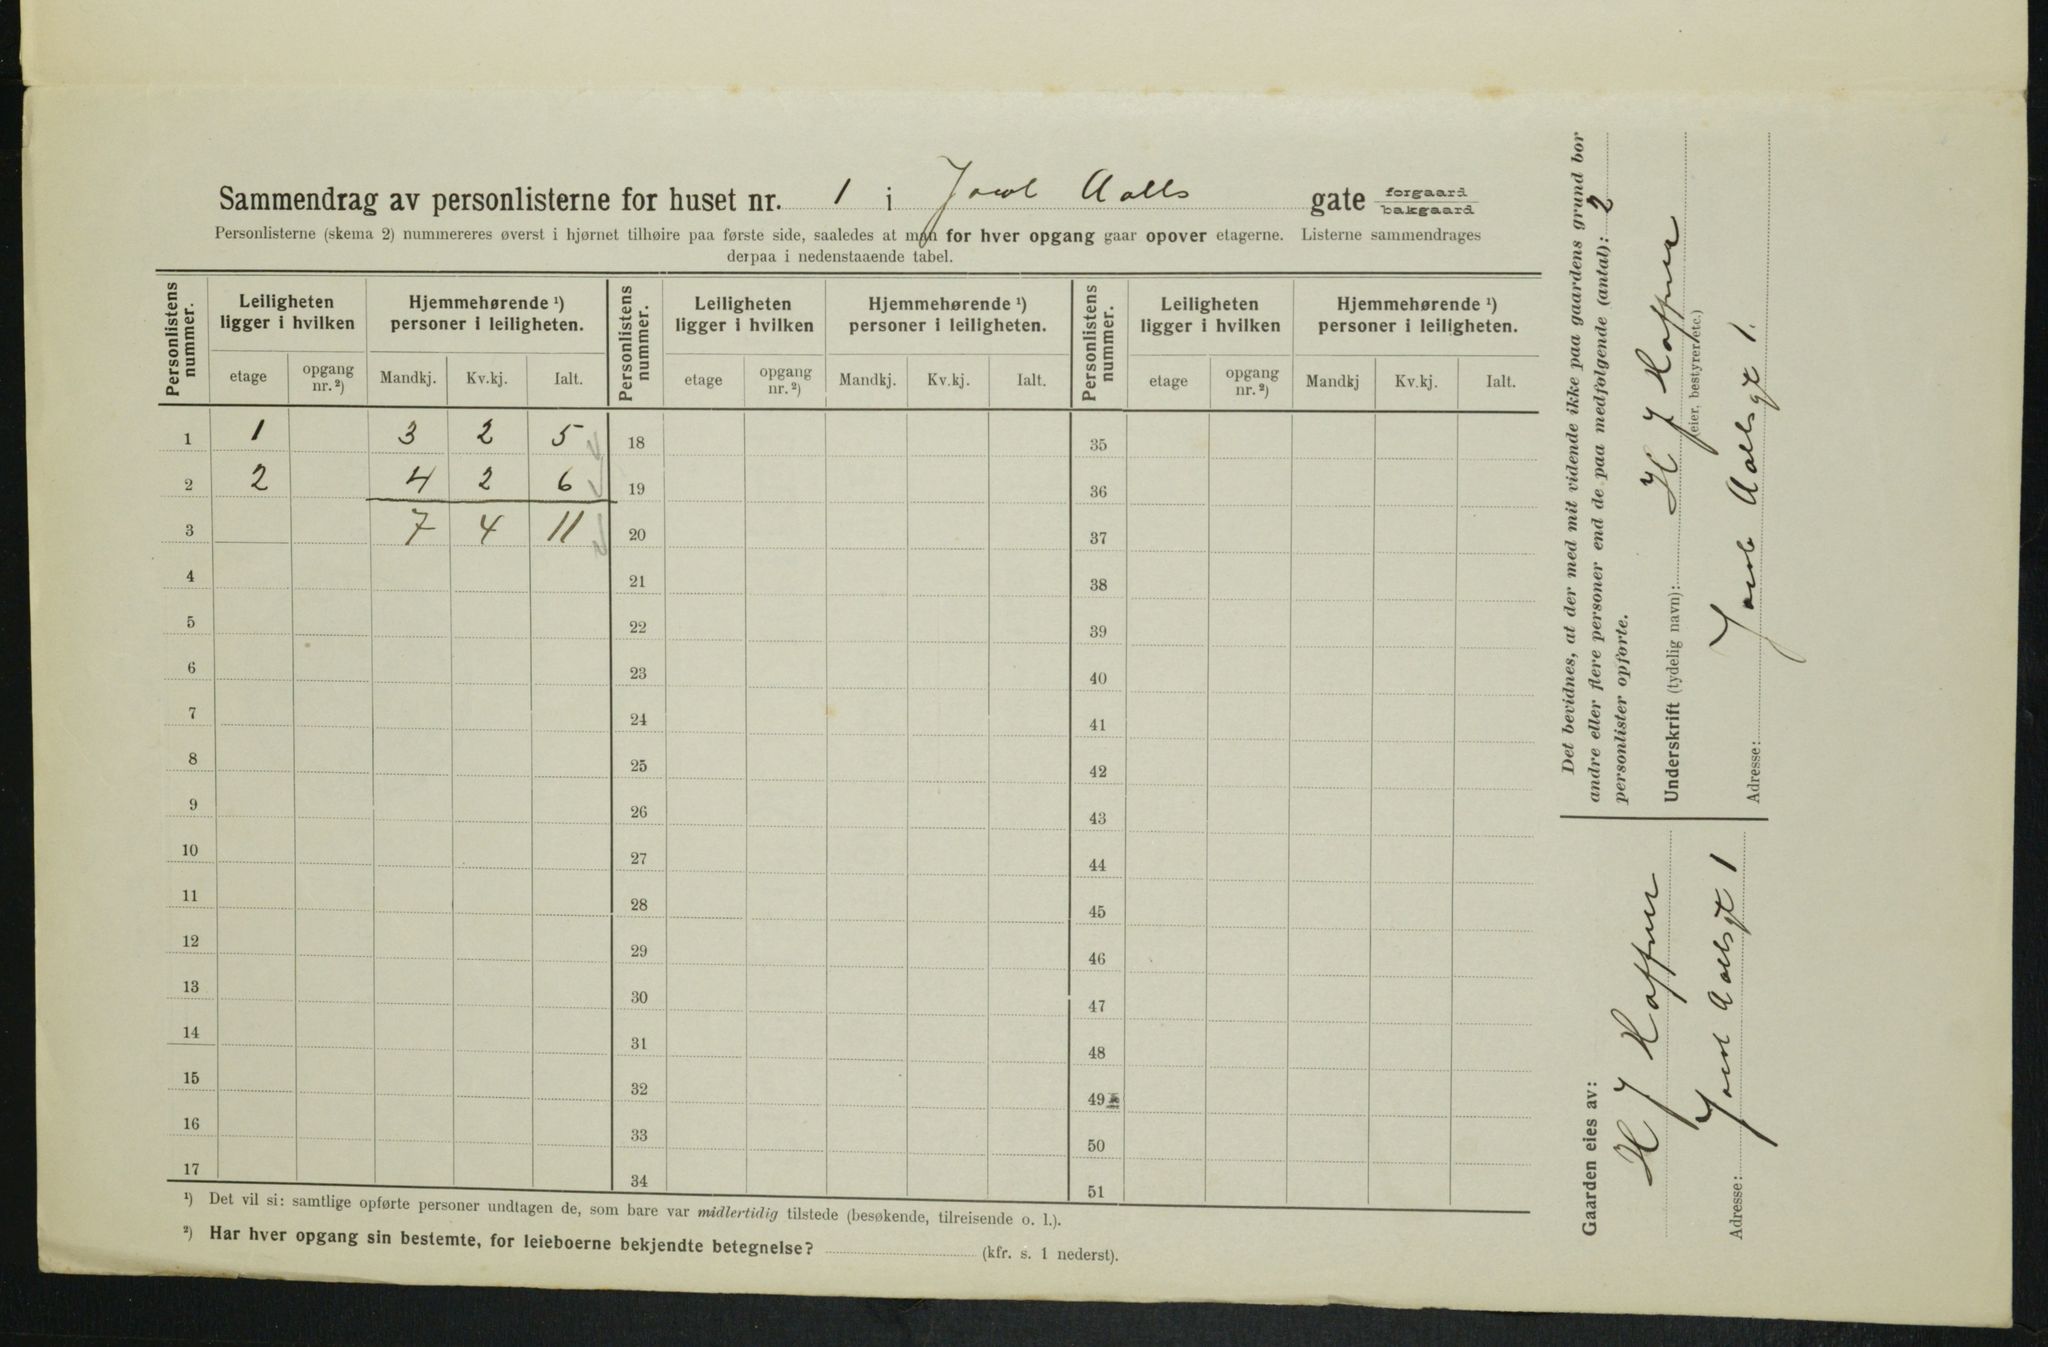 Sammendrag av personlisterne for huset nr. 1 i Jacob Aalls gate forgaard bakgaard
Personlisterne (skema 2) nummereres øverst i hjørnet tilhøire paa første side, saaledes at man for hver opgang gaar opover etagerne. Listerne sammendrages
derpaa i nedenstaaende tabel.
Personlistens nummer. Leiligheten ligger i hvilken Hjemmehørende ¹) personer i leiligheten. Personlistens nummer. Leiligheten ligger i hvilken Hjemmehørende ¹) personer i leiligheten. Personlistens nummer. Leiligheten ligger i hvilken Hjemmehørende ¹) personer i leiligheten.
etage opgang nr. ²) Mandkj. Kv.kj. Ialt. etage opgang nr. ²) Mandkj. Kv.kj. Ialt. etage opgang nr. ²) Mandkj Kv.kj. Ialt.
1 1 3 2 5 18 35
2 2 4 2 6 19 36
3 7 4 11 20 37
4 21 38
5 22 39
6 23 40
7 24 41
8 25 42
9 26 43
10 27 44
11 28 45
12 29 46
13 30 47
14 31 48
15 32 49
16 33 50
17 34 51
¹) Det vil si: samtlige opførte personer undtagen de, som bare var midlertidig tilstede (besøkende, tilreisende o. l.).
²) Har hver opgang sin bestemte, for leieboerne bekjendte betegnelse? (kfr. s. 1 nederst).
Det bevidnes, at der med mit vidende ikke paa gaardens grund bor
andre eller flere personer end de paa medfølgende (antal): 2
personlister opførte.
Underskrift (tydelig navn): H J
(eier, bestyrer etc.)
Adresse: Jacob Aalls gt 1.
Gaarden eies av:
H J
Adresse: Jacob Aalls gt 1